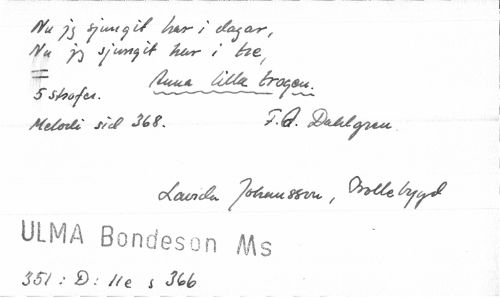 Nu jg sjungit har i dagar,
Nu jg sjungit har i tre,
=
5 strofer. Anna lilla trogen.
Melodi sid 368. F. A. Dahlgren
Lovisa Johansson, Bollebygd
ULMA Bondeson Ms
351 : D : 11e s 366